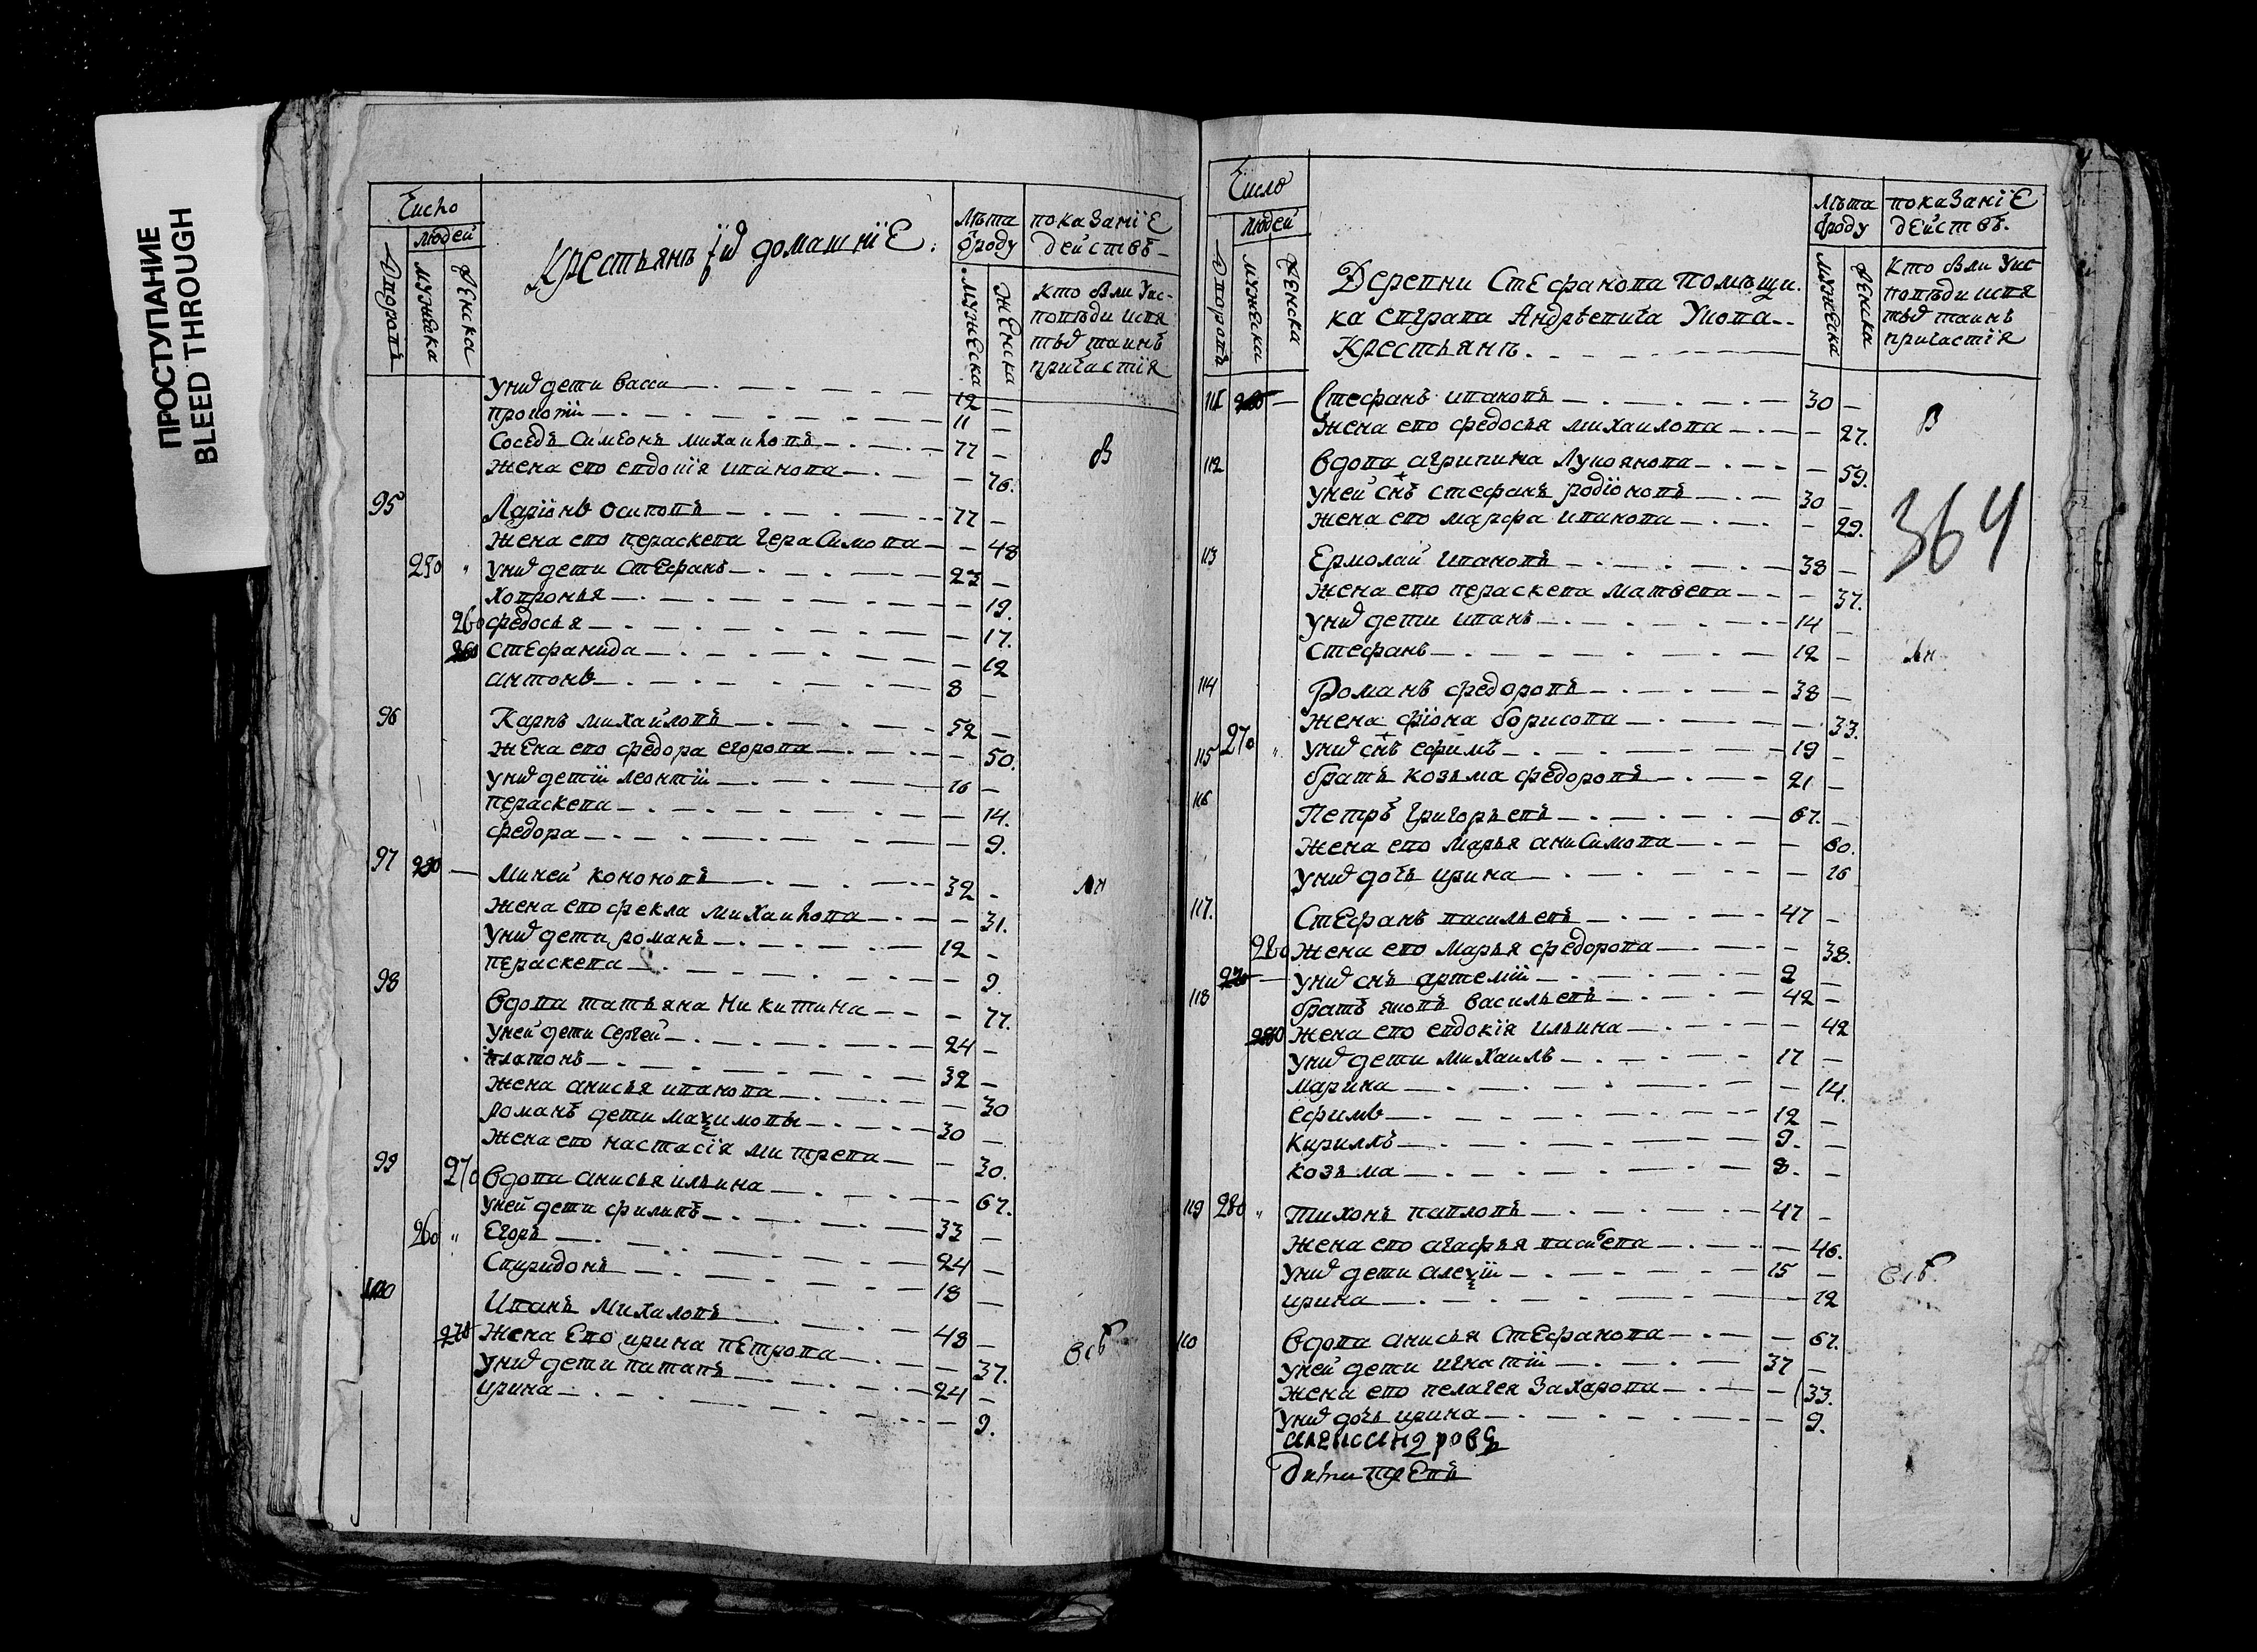 ПРОСТУПАНИЕ
BLEED THROUGH
Число
людей
Дворовъ
мужеска
женска
Крестьянъ їихъ домашнїе.
лѣта
ѿроду
мужеска
женска
показанїе
действъ
кто были уис-
повѣди и свя
тыхъ таинъ
причастїя
унихъ дети васси 12 —
прокопи 11 —
соседъ симионъ михаиловъ 77 —
жена ево евдокїя иванова — 76.
95 Ларїонъ осиповъ 77 —
жена ево параскева герасимова — 48
250 „ унихъ дети стефанъ 27 —
хавронья — 19.
260 федосья — 17.
260 стефанида — 12
антонъ 8 —
96 Карпъ михайловъ 52 —
жена ево федора егорова — 50.
унихъ детїи леонтїи 16 —
параскева — 14.
федора — 9.
97 250 — Миней кононовъ 32 —
жена ево фекла михаилова — 31.
унихъ дети романъ 12 —
пераскева — 9.
98 вдова татьяна никитина — 77.
уней дети сергей 24 —
платонъ 32 —
жена анисья иванова — 30
романъ дети маѯимовы 30 —
жена ево настасїя митрева — 30.
99 270 вдова анисья ильина — 67.
уней дети филипъ 33 —
260 „ Егоръ 24 —
Спиридонъ 18 —
100 Иванъ михаловъ 48 —
270 жена ево ирина петрова — 37.
унихъ дети патапъ 24 —
ирина — 9.
В
Лн
Число
людей
Дворовъ
мужеска
женска
Деревни Стефанова помѣщи-
ка
Андрѣевича
Крестьянъ
лѣта
ѿроду
мужеска
женска
показанїе
действъ.
кто были уис-
повѣди и свя
тыхъ таинъ
причастїя
111 Стефанъ ивановъ 30 —
жена ево федосья михаилова — 27.
112 вдова агрипина лукоянова — 59.
уней снъ стефанъ родїоновъ 30 —
жена ево марфа иванова — 29.
113 Ермолай ивановъ 38 —
жена ево пераскева матвева — 37.
унихъ дети иванъ 14 —
стефанъ 12 —
114 Романъ федоровъ 38 —
жена фїона борисова — 33.
270 „ унихъ снъ ефимъ 19 —
115 братъ козьма федоровъ 21 —
116 Петръ григорьевъ 67. —
жена ево марья анисимова — 60.
унихъ дочь ирина — 16
117. Стефанъ васильевъ 47 —
280 жена ево марья федорова — 38.
270 — унихъ снъ артемїи 2 —
118 братъ яковъ васильевъ 42 —
280 жена ево евдокїя ильина — 42
унихъ дети михаилъ 17 —
марина — 14.
ефимъ 12 —
кириллъ 9. —
козьма 8. —
119 280 „ тихонъ павловъ 47 —
жена ево агафья — 46.
унихъ дети алеѯїи 15 —
ирина — 12
110 вдова анисья стефанова — 67.
уней дети игнатїи 37 —
жена ево пелагея захарова — 33.
унихъ дочь ирина — 9.
В
364
Лн